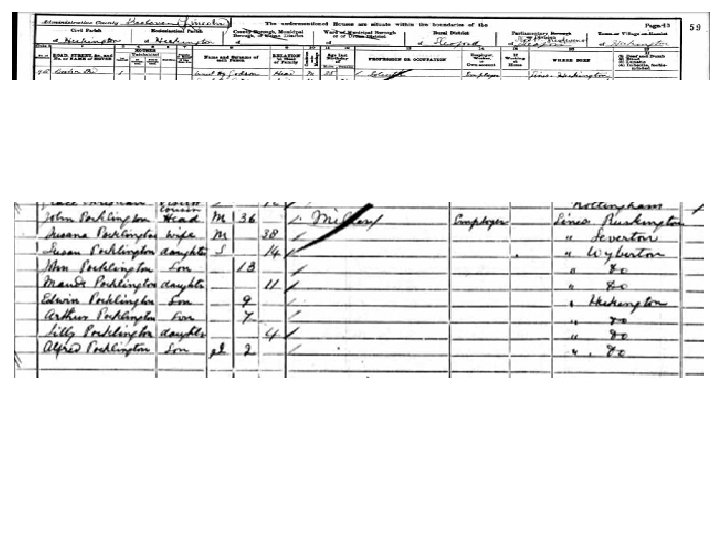 Administrative County Kesteven (Lincoln) The undermentioned Houses are situate within the boundaries of the Page 43 59
Civil Parish Ecclesiastical Parish County Borough, Municipal Borough, or Urban District Ward of Municipal Borough or of Urban District Rural District Parliamentary Borough or Division Town or Village or Hamlet
of Heckington of Heckington of of of Sleaford of of Heckington
ROAD, STREET, &c., and No. or NAME of HOUSE HOUSES Name and Surname of each Person RELATION to Head of Family Age last Birthday PROFESSION OR OCCUPATION WHERE BORN
Head M Employer Lincs Heckington
Cousin Nottingham
John Pocklington Head M 36 Miller Employer Lincs Ruskington
Susana Pocklington Wife M 38 " Leverton
Susan Pocklington daughter S 14 " Wyberton
John Pocklington Son 13 " Do
Maude Pocklington daughter 11 " Do
Edwin Pocklington Son 9 " Heckington
Arthur Pocklington Son 7 " Do
Lilly Pocklington daughter 4 " Do
Alfred Pocklington Son S 2 " Do